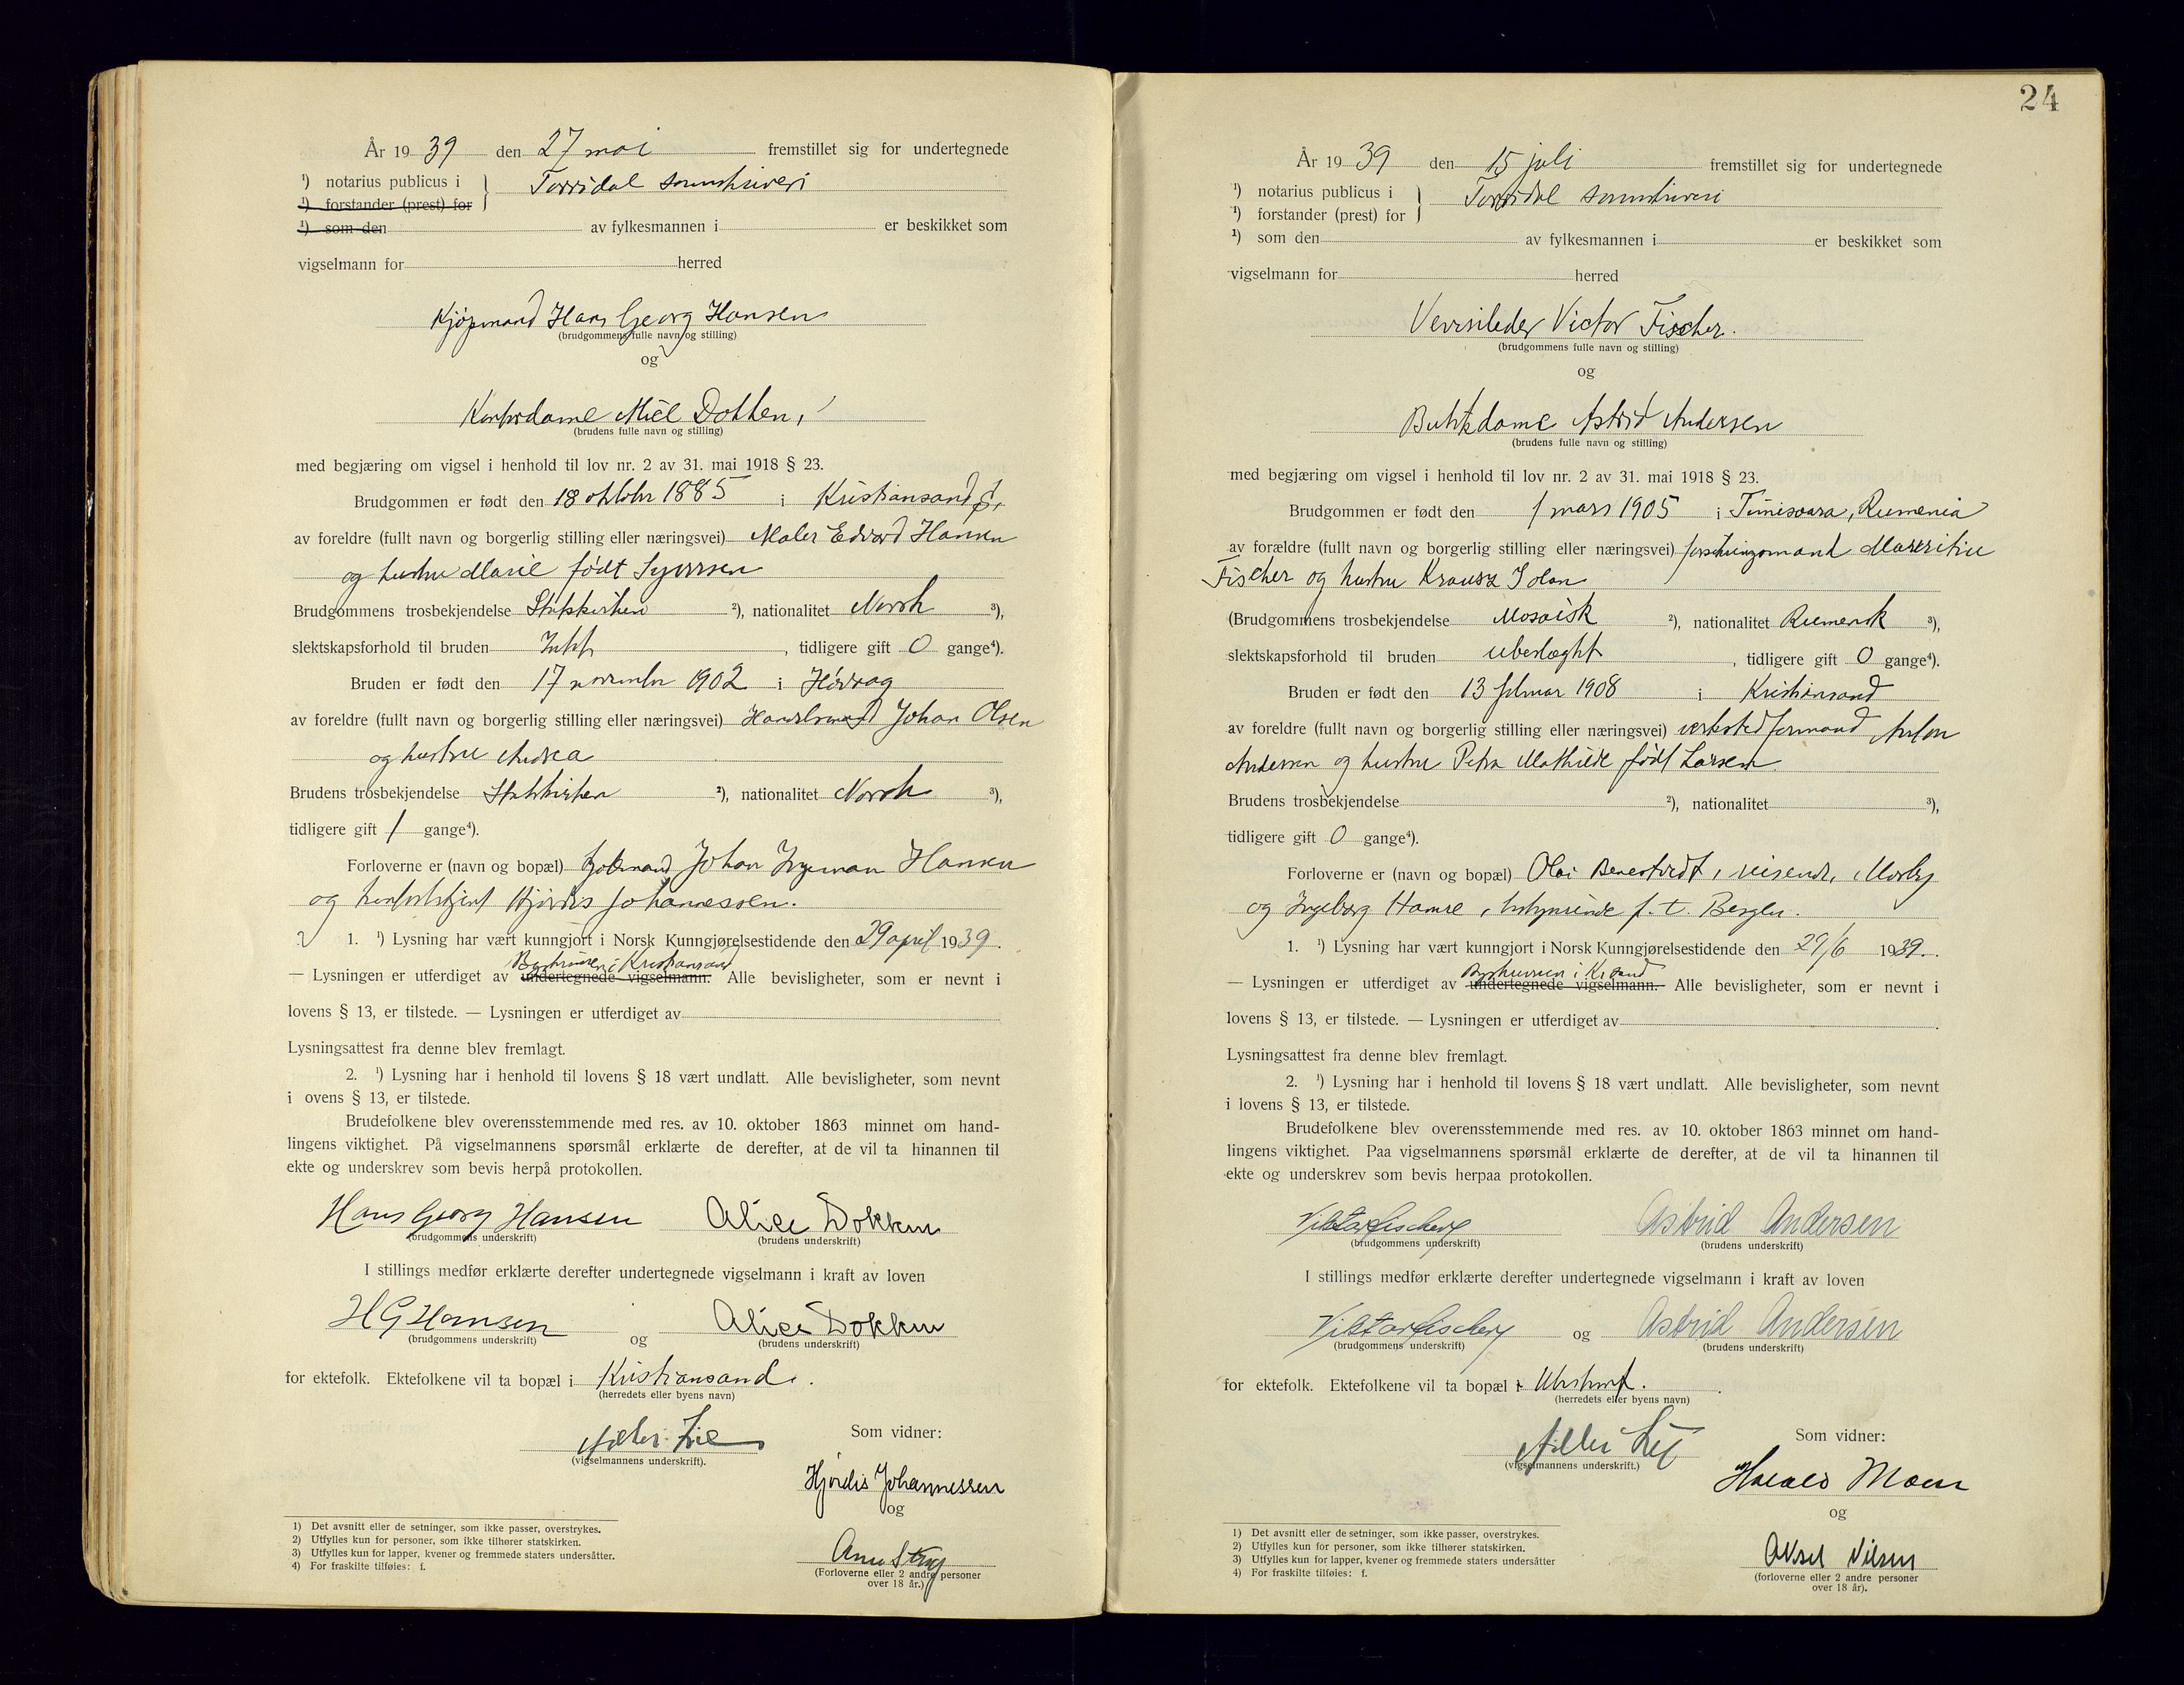 År 1939 den 27 mai fremstillet sig for undertegnede
¹) notarius publicus i } Torridal sorenskriveri
¹) forstander (prest) for
¹) som den av fylkesmannen i er beskikket som
vigselmann for herred
Kjøpmand Hans Georg Hansen
(brudgommens fulle navn og stilling)
og
Kontordame Alice Dokken,
(brudens fulle navn og stilling)
med begjæring om vigsel i henhold til lov nr. 2 av 31. mai 1918 § 23.
Brudgommen er født den 18 oktober 1885 i Kristiansand S.
av foreldre (fullt navn og borgerlig stilling eller næringsvei) Maler Edvard Hansen
og hustru Marie født Syvertsen
Brudgommens trosbekjendelse Statskirken ²), nationalitet Norsk ³),
slektskapsforhold til bruden , tidligere gift 0 gange⁴).
Bruden er født den 17 november 1902 i Høvåg
av foreldre (fullt navn og borgerlig stilling eller næringsvei) Handelsmand Johan Olsen
og hustru Andrea
Brudens trosbekjendelse Statskirken ²), nationalitet Norsk ³),
tidligere gift 1 gange⁴).
Forloverne er (navn og bopæl) Johan Ingeman Hansen
og Hjørdis Johannessen.
1. ¹) Lysning har vært kunngjort i Norsk Kunngjørelsestidende den 29 april 1939.
Byskriveren i Kristiansand
— Lysningen er utferdiget av undertegnede vigselmann. Alle bevisligheter, som er nevnt i
lovens § 13, er tilstede. — Lysningen er utferdiget av
Lysningsattest fra denne blev fremlagt.
2. ¹) Lysning har i henhold til lovens § 18 vært undlatt. Alle bevisligheter, som nevnt
i ovens § 13, er tilstede.
Brudefolkene blev overensstemmende med res. av 10. oktober 1863 minnet om hand-
lingens viktighet. På vigselmannens spørsmål erklærte de derefter, at de vil ta hinannen til
ekte og underskrev som bevis herpå protokollen.
Hans Georg Hansen Alice Dokken
(brudgommens underskrift) (brudens underskrift)
I stillings medfør erklærte derefter undertegnede vigselmann i kraft av loven
H G Hansen og Alice Dokken
(brudgommens underskrift) (brudens underskrift)
for ektefolk. Ektefolkene vil ta bopæl i Kristiansand.
(herredets eller byens navn)
Lie
(vigselmannens underskrift).
Som vidner:
Hjørdis Johannessen
og
(Forloverne eller 2 andre personer
over 18 år.)
1) Det avsnitt eller de setninger, som ikke passer, overstrykes.
2) Utfylles kun for personer, som ikke tilhører statskirken.
3) Utfylles kun for lapper, kvener og fremmede staters undersåtter.
4) For fraskilte tilføies: f.
24
År 1939 den 15 juli fremstillet sig for undertegnede
¹) notarius publicus i } Torridal sorenskriveri
¹) forstander (prest) for
¹) som den av fylkesmannen i er beskikket som
vigselmann for herred
Victor Fischer.
(brudgommens fulle navn og stilling)
og
Butikkdame Astrid Andersen
(brudens fulle navn og stilling)
med begjæring om vigsel i henhold til lov nr. 2 av 31. mai 1918 § 23.
Brudgommen er født den 1 mars 1905 i Timisoara, Rumenia
av forældre (fullt navn og borgerlig stilling eller næringsvei)
Fischer og hustru Krausz Jolan
(Brudgommens trosbekjendelse Mosaisk ²), nationalitet Rumensk ³),
slektskapsforhold til bruden ubeslægtet , tidligere gift 0 gange⁴).
Bruden er født den 13 februar 1908 i Kristiansand
av foreldre (fullt navn og borgerlig stilling eller næringsvei) verkstedformand Anton
Andersen og hustru Petra Mathilde født Larsen
Brudens trosbekjendelse ²), nationalitet ³),
tidligere gift 0 gange⁴).
Forloverne er (navn og bopæl) Olai Benestvedt, reisende, Mosby
og Ingeborg Hamre, f. t. Bergen.
1. ¹) Lysning har vært kunngjort i Norsk Kunngjørelsestidende den 29/6 1939.
Byskriveren i Kr.sand
— Lysningen er utferdiget av undertegnede vigselmann. Alle bevisligheter, som er nevnt i
lovens § 13, er tilstede. — Lysningen er utferdiget av
Lysningsattest fra denne blev fremlagt.
2. ¹) Lysning har i henhold til lovens § 18 vært undlatt. Alle bevisligheter, som nevnt
i lovens § 13, er tilstede.
Brudefolkene blev overensstemmende med res. av 10. oktober 1863 minnet om hand-
lingens viktighet. Paa vigselmannens spørsmål erklærte de derefter, at de vil ta hinannen til
ekte og underskrev som bevis herpaa protokollen.
Viktor Fischer Astrid Andersen
(brudgommens underskrift) (brudens underskrift)
I stillings medfør erklærte derefter undertegnede vigselmann i kraft av loven
Viktor Fischer og Astrid Andersen
(brudgommens underskrift) (brudens underskrift)
for ektefolk. Ektefolkene vil ta bopæl i
(herredets eller byens navn)
(vigselmannens underskrift.)
Som vidner:
Harald Moen
og
Aksel Nilsen
(forloverne eller 2 andre personer
over 18 år).
1) Det avsnitt eller de setninger, som ikke passer, overstrykes.
2) Utfylles kun for personer, som ikke tilhører statskirken.
3) Utfylles kun for lapper, kvener og fremmede staters undersåtter
4) For fraskilte tilføies: f.